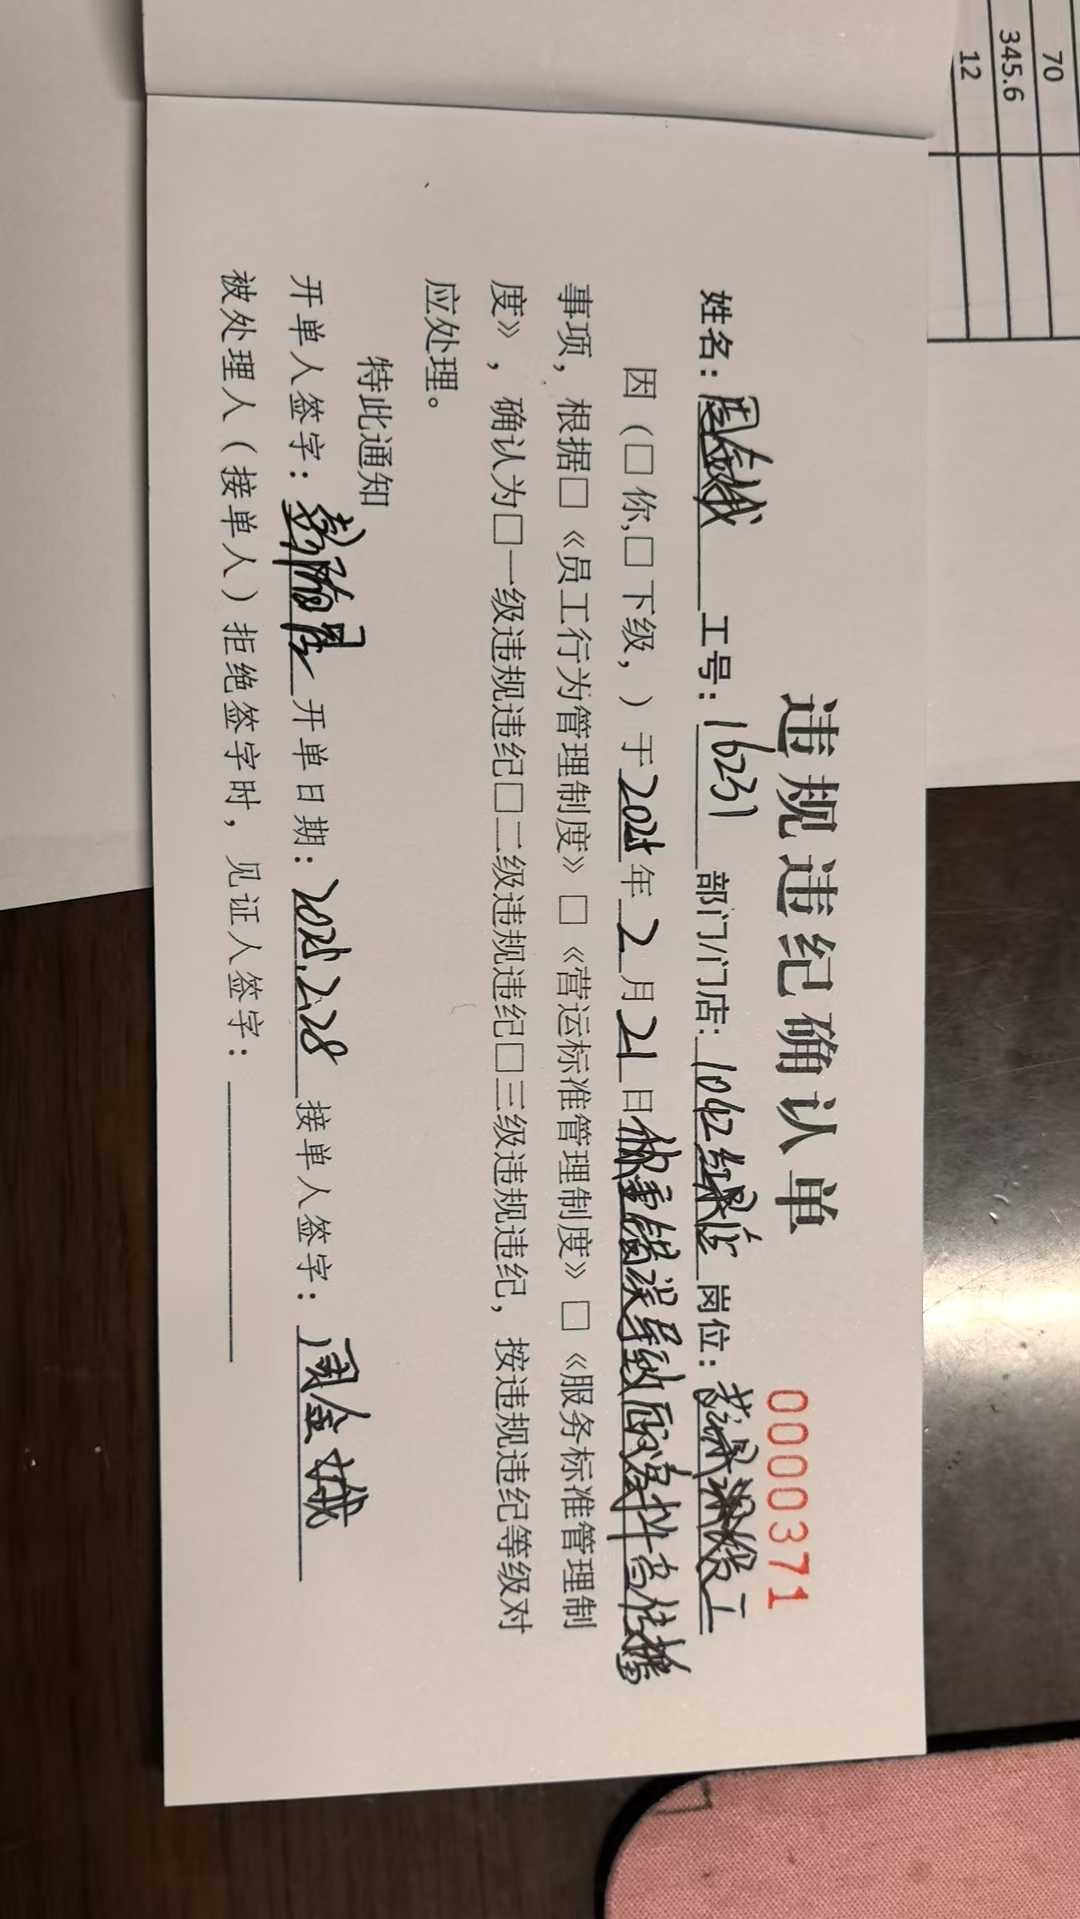 70
345.6
12
违规违纪确认单
0000371
姓名：周金娥 工号：16231 部门/门店：1042红泉店 岗位：
因（□你,□下级，）于2025年2月21日称重错误导致顾客抖音传播
事项，根据□《员工行为管理制度》□《营运标准管理制度》□《服务标准管理制
度》，确认为□一级违规违纪□二级违规违纪□三级违规违纪，按违规违纪等级对
应处理。
特此通知
开单人签字： 开单日期：2025.2.28 接单人签字：周金娥
被处理人（接单人）拒绝签字时，见证人签字：